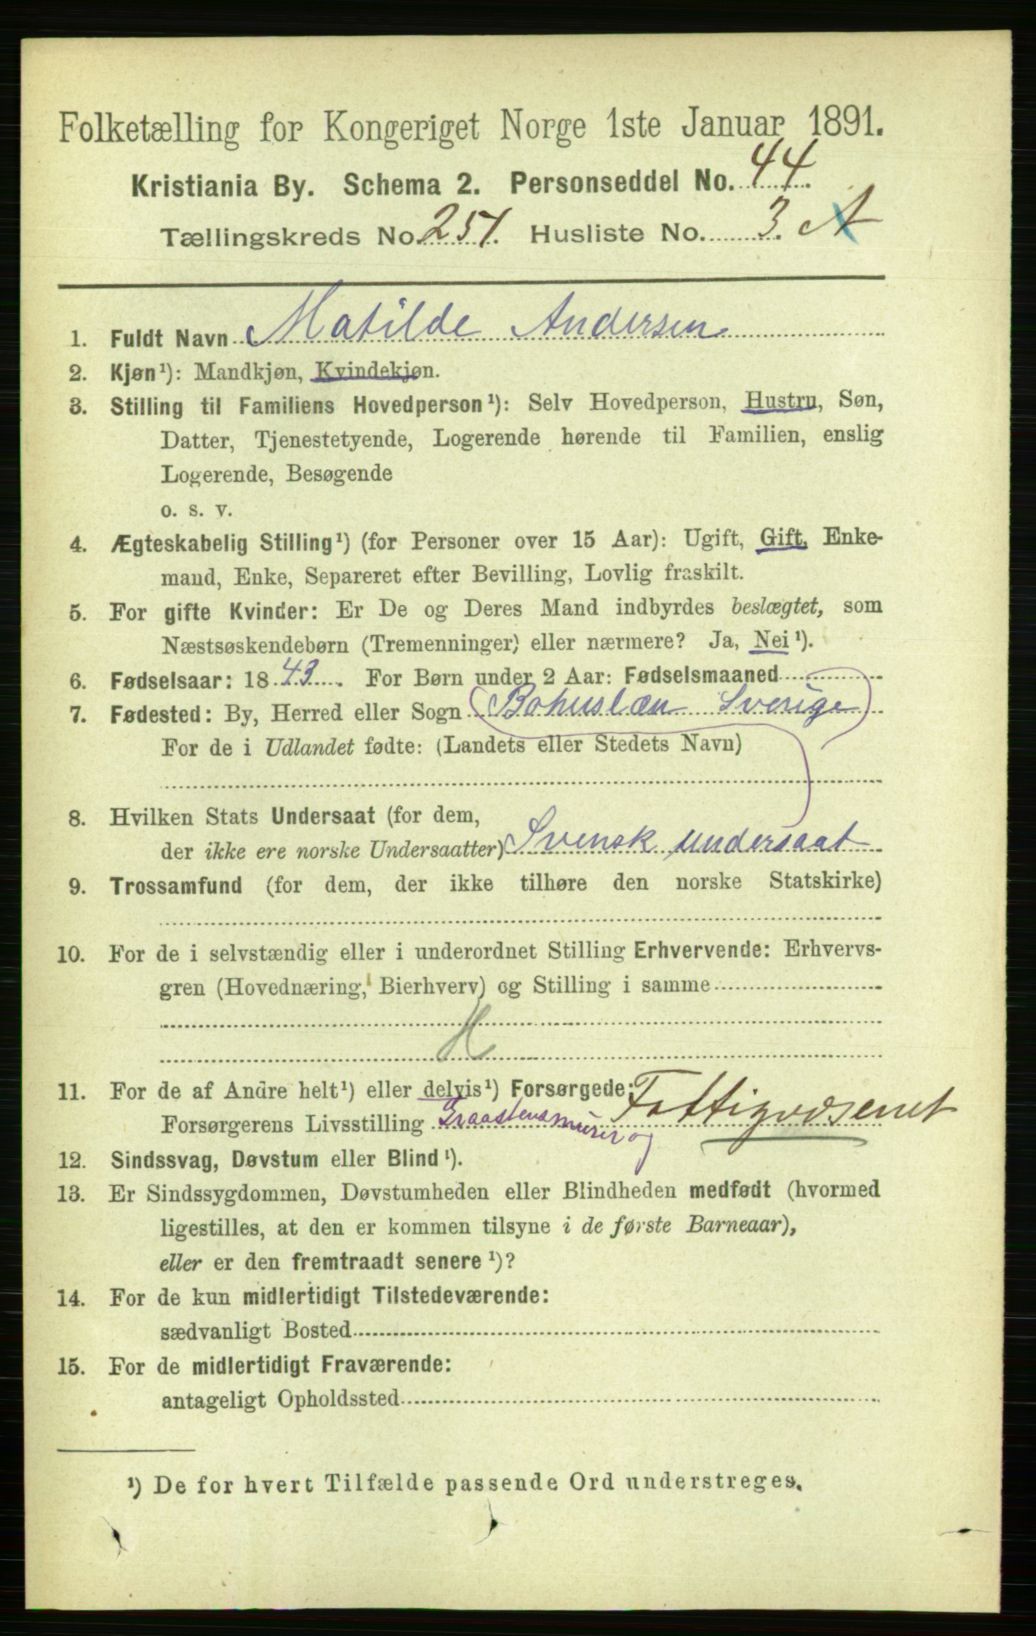 Folketælling for Kongeriget Norge 1ste Januar 1891.
Kristiania By. Schema 2. Personseddel No. 44.
Tællingskreds No. 251. Husliste No. 3. A
1. Fuldt Navn Matilde Andersen
2. Kjøn¹): Mandkjøn, Kvindekjøn.
3. Stilling til Familiens Hovedperson¹): Selv Hovedperson, Hustru, Søn,
Datter, Tjenestetyende, Logerende hørende til Familien, enslig
Logerende, Besøgende
o. s. v.
4. Ægteskabelig Stilling¹) (for Personer over 15 Aar): Ugift, Gift, Enke-
mand, Enke, Separeret efter Bevilling, Lovlig fraskilt.
5. For gifte Kvinder: Er De og Deres Mand indbyrdes beslægtet, som
Næstsøskendebørn (Tremenninger) eller nærmere? Ja, Nei¹).
6. Fødselsaar: 1843. For Børn under 2 Aar: Fødselsmaaned
7. Fødested: By, Herred eller Sogn Bohuslæn Sverige
For de i Udlandet fødte: (Landets eller Stedets Navn)
8. Hvilken Stats Undersaat (for dem,
der ikke ere norske Undersaatter) Svensk undersaat
9. Trossamfund (for dem, der ikke tilhøre den norske Statskirke)
10. For de i selvstændig eller i underordnet Stilling Erhvervende: Erhvervs-
gren (Hovednæring, Bierhverv) og Stilling i samme
H
11. For de af Andre helt¹) eller delvis¹) Forsørgede: Fattigvæsenet
Forsørgerens Livsstilling Graastensmurer og
12. Sindssvag, Døvstum eller Blind¹).
13. Er Sindssygdommen, Døvstumheden eller Blindheden medfødt (hvormed
ligestilles, at den er kommen tilsyne i de første Barneaar),
eller er den fremtraadt senere¹)?
14. For de kun midlertidigt Tilstedeværende:
sædvanligt Bosted
15. For de midlertidigt Fraværende:
antageligt Opholdssted
¹) De for hvert Tilfælde passende Ord understreges.